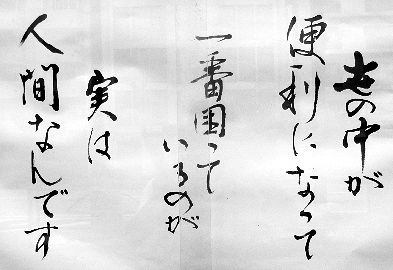 世の中が
便利になって
一番困って
いるのが
実は
人間なんです